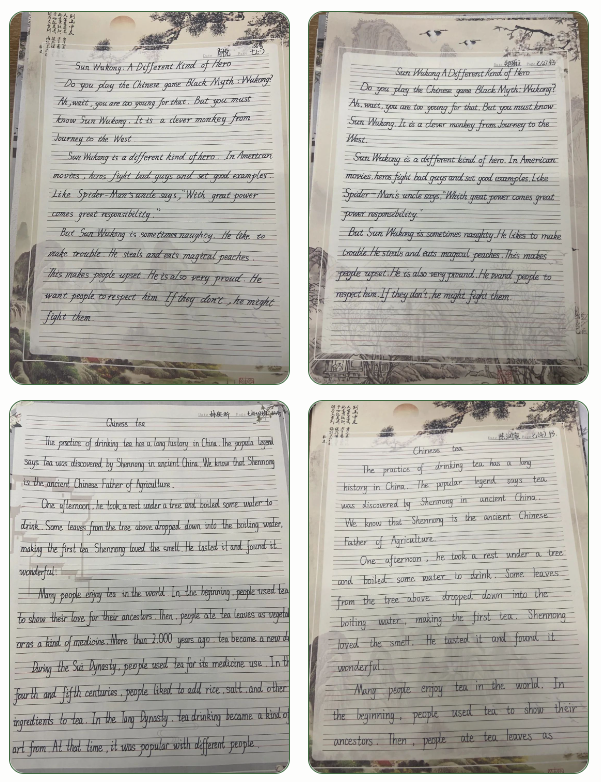 Sun Wukong: A Different Kind of Hero
Do you play the Chinese game Black Myth: Wukong?
Ah, wait, you are too young for that. But you must
know Sun Wukong. It is a clever monkey from
Journey to the West
Sun Wukong is a different kind of hero. In American
movies, heros fight bad guys and set good examples.
Like Spider-Man's uncle says, "With great power
comes great responsibility."
But Sun Wukong is sometimes naughty. He like to
make trouble. He steals and eats magical peaches.
This makes people upset. He is also very proud. He
want people to respect him. If they don't, he might
fight them.
Sun Wukong A Different Kind of Hero
Do you play the Chinese game Black Myth: Wukong?
Ah, wait, you are too young for that. But you must know
Sun Wukong. It is a clever monkey from Journey to the
West.
Sun Wukong is a different kind of hero. In American
movies heros fight bad guys and set good examples. Like
Spider-Man's uncle says, "With great power comes great
power responsibility."
But Sun Wukong is sometimes naughty. He likes to make
trouble. He steals and eats magical peaches. This makes
people upset. He is also very pround. He want people to
respect him. If they don't, he might fight them
Chinese tea
The practice of drinking tea has a long history in China. The popula legend
says Tea was discovered by Shennong in ancient China. We know that Shennong
is the ancient Chinese Father of Agriculture.
One afternoon, he took a rest under a tree and boiled some water to
drink. Some leaves from the tree above dropped down into the boiling water,
making the first tea. Shennong loved the smell. He tasted it and found it
wonderful.
Many people enjoy tea in the world. In the beginning, people used tea
to show their love for their ancestors. Then, people ate tea leaves as vegetal
or as a kind of medicine. More than 2,000 years ago, tea became a new d
During the Sui Dynasty, people used tea for its medicine use. In th
fourth and fifth centuries, people liked to add rice, salt and other
ingredients to tea. In the Tang Dynasty, tea drinking became a kind of
art from. At that time, it was popular with different people.
Chinese tea
The practice of drinking tea has a long
history in China. The popular legend says tea
was discovered by Shennong in ancient China.
We know that Shennong is the ancient Chinese
Father of Agriculture.
One afternoon, he took a rest under a tree
and boiled some water to drink. Some leaves
from the tree above dropped down into the
boiling water, making the first tea. Shennong
loved the smell. He tasted it and found it
wonderful.
Many people enjoy tea in the world. In
the beginning, people used tea to show their
ancestors. Then, people ate tea leaves as